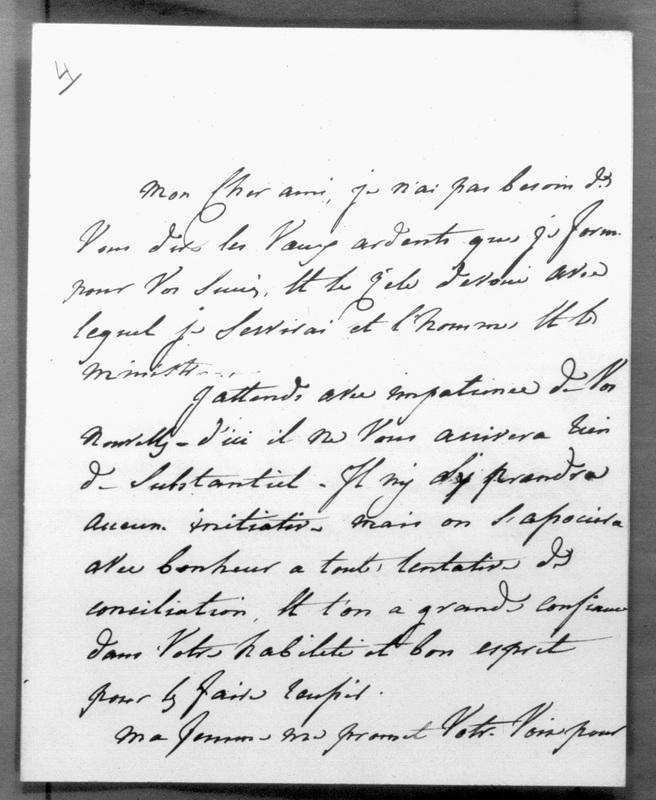 4
mon Cher ami, je n'ai pas besoin de
Vous dire les Vœux ardents que je form.
pour Vos succès, et le zèle devoué avec
lequel je Servirai et l'homme et le
ministre....
J'attends avec impatience de Vos
nouvelles - d'ici il ne Vous arrivera rien
de Substantiel - Il n'y prendra
aucune initiative mais on s'associera
avec bonheur a toute tentative de
conciliation, et l'on a grande confiance
dans Votre habileté et bon esprit
pour les faire reussir.
ma femme me promet Votre Voix pour